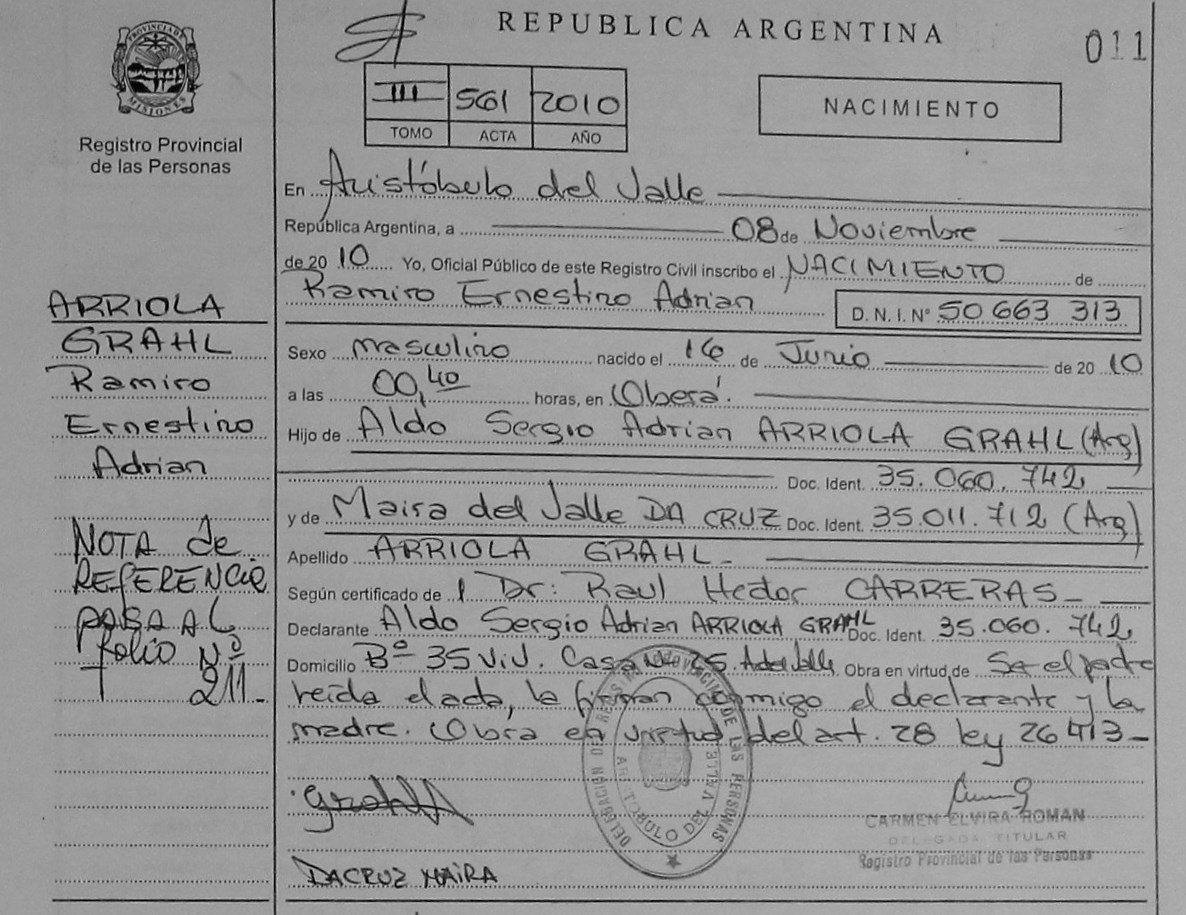 PROVINCIA DE MISIONES
Registro Provincial
de las Personas
ARRIOLA
GRAHL
Ramiro
Ernestino
Adrian
NOTA de
REFERENCIA
PASA AL
folio Nº
211-
REPUBLICA ARGENTINA
011
III 561 2010
TOMO ACTA AÑO
NACIMIENTO
En Aristóbulo del Valle
República Argentina, a 08 de Noviembre
de 20 10 Yo, Oficial Público de este Registro Civil inscribo el NACIMIENTO de
Ramiro Ernestino Adrian D. N. I. Nº 50 663 313
Sexo masculino nacido el 16 de Junio de 20 10
a las 00,40 horas, en Oberá.
Hijo de Aldo Sergio Adrian ARRIOLA GRAHL (Arg)
Doc. Ident. 35.060.742
y de Maira del Valle DA CRUZ Doc. Ident. 35.011.712 (Arg)
Apellido ARRIOLA GRAHL-
Según certificado de Dr: Raul Hector CARRERAS-
Declarante Aldo Sergio Adrian ARRIOLA GRAHL Doc. Ident. 35.060.742
Domicilio Bº 35 Viv. Casa Nº 25. A. del Valle Obra en virtud de Ser el padre
leída el acta, la firman conmigo el declarante y la
madre. Obra en virtud del art. 28 ley 26413-
DELEGACION DEL REGISTRO PROVINCIAL DE LAS PERSONAS
ARISTOBULO DEL VALLE
CARMEN ELVIRA ROMAN
DELEGADA TITULAR
Registro Provincial de las Personas
DACRUZ MAIRA